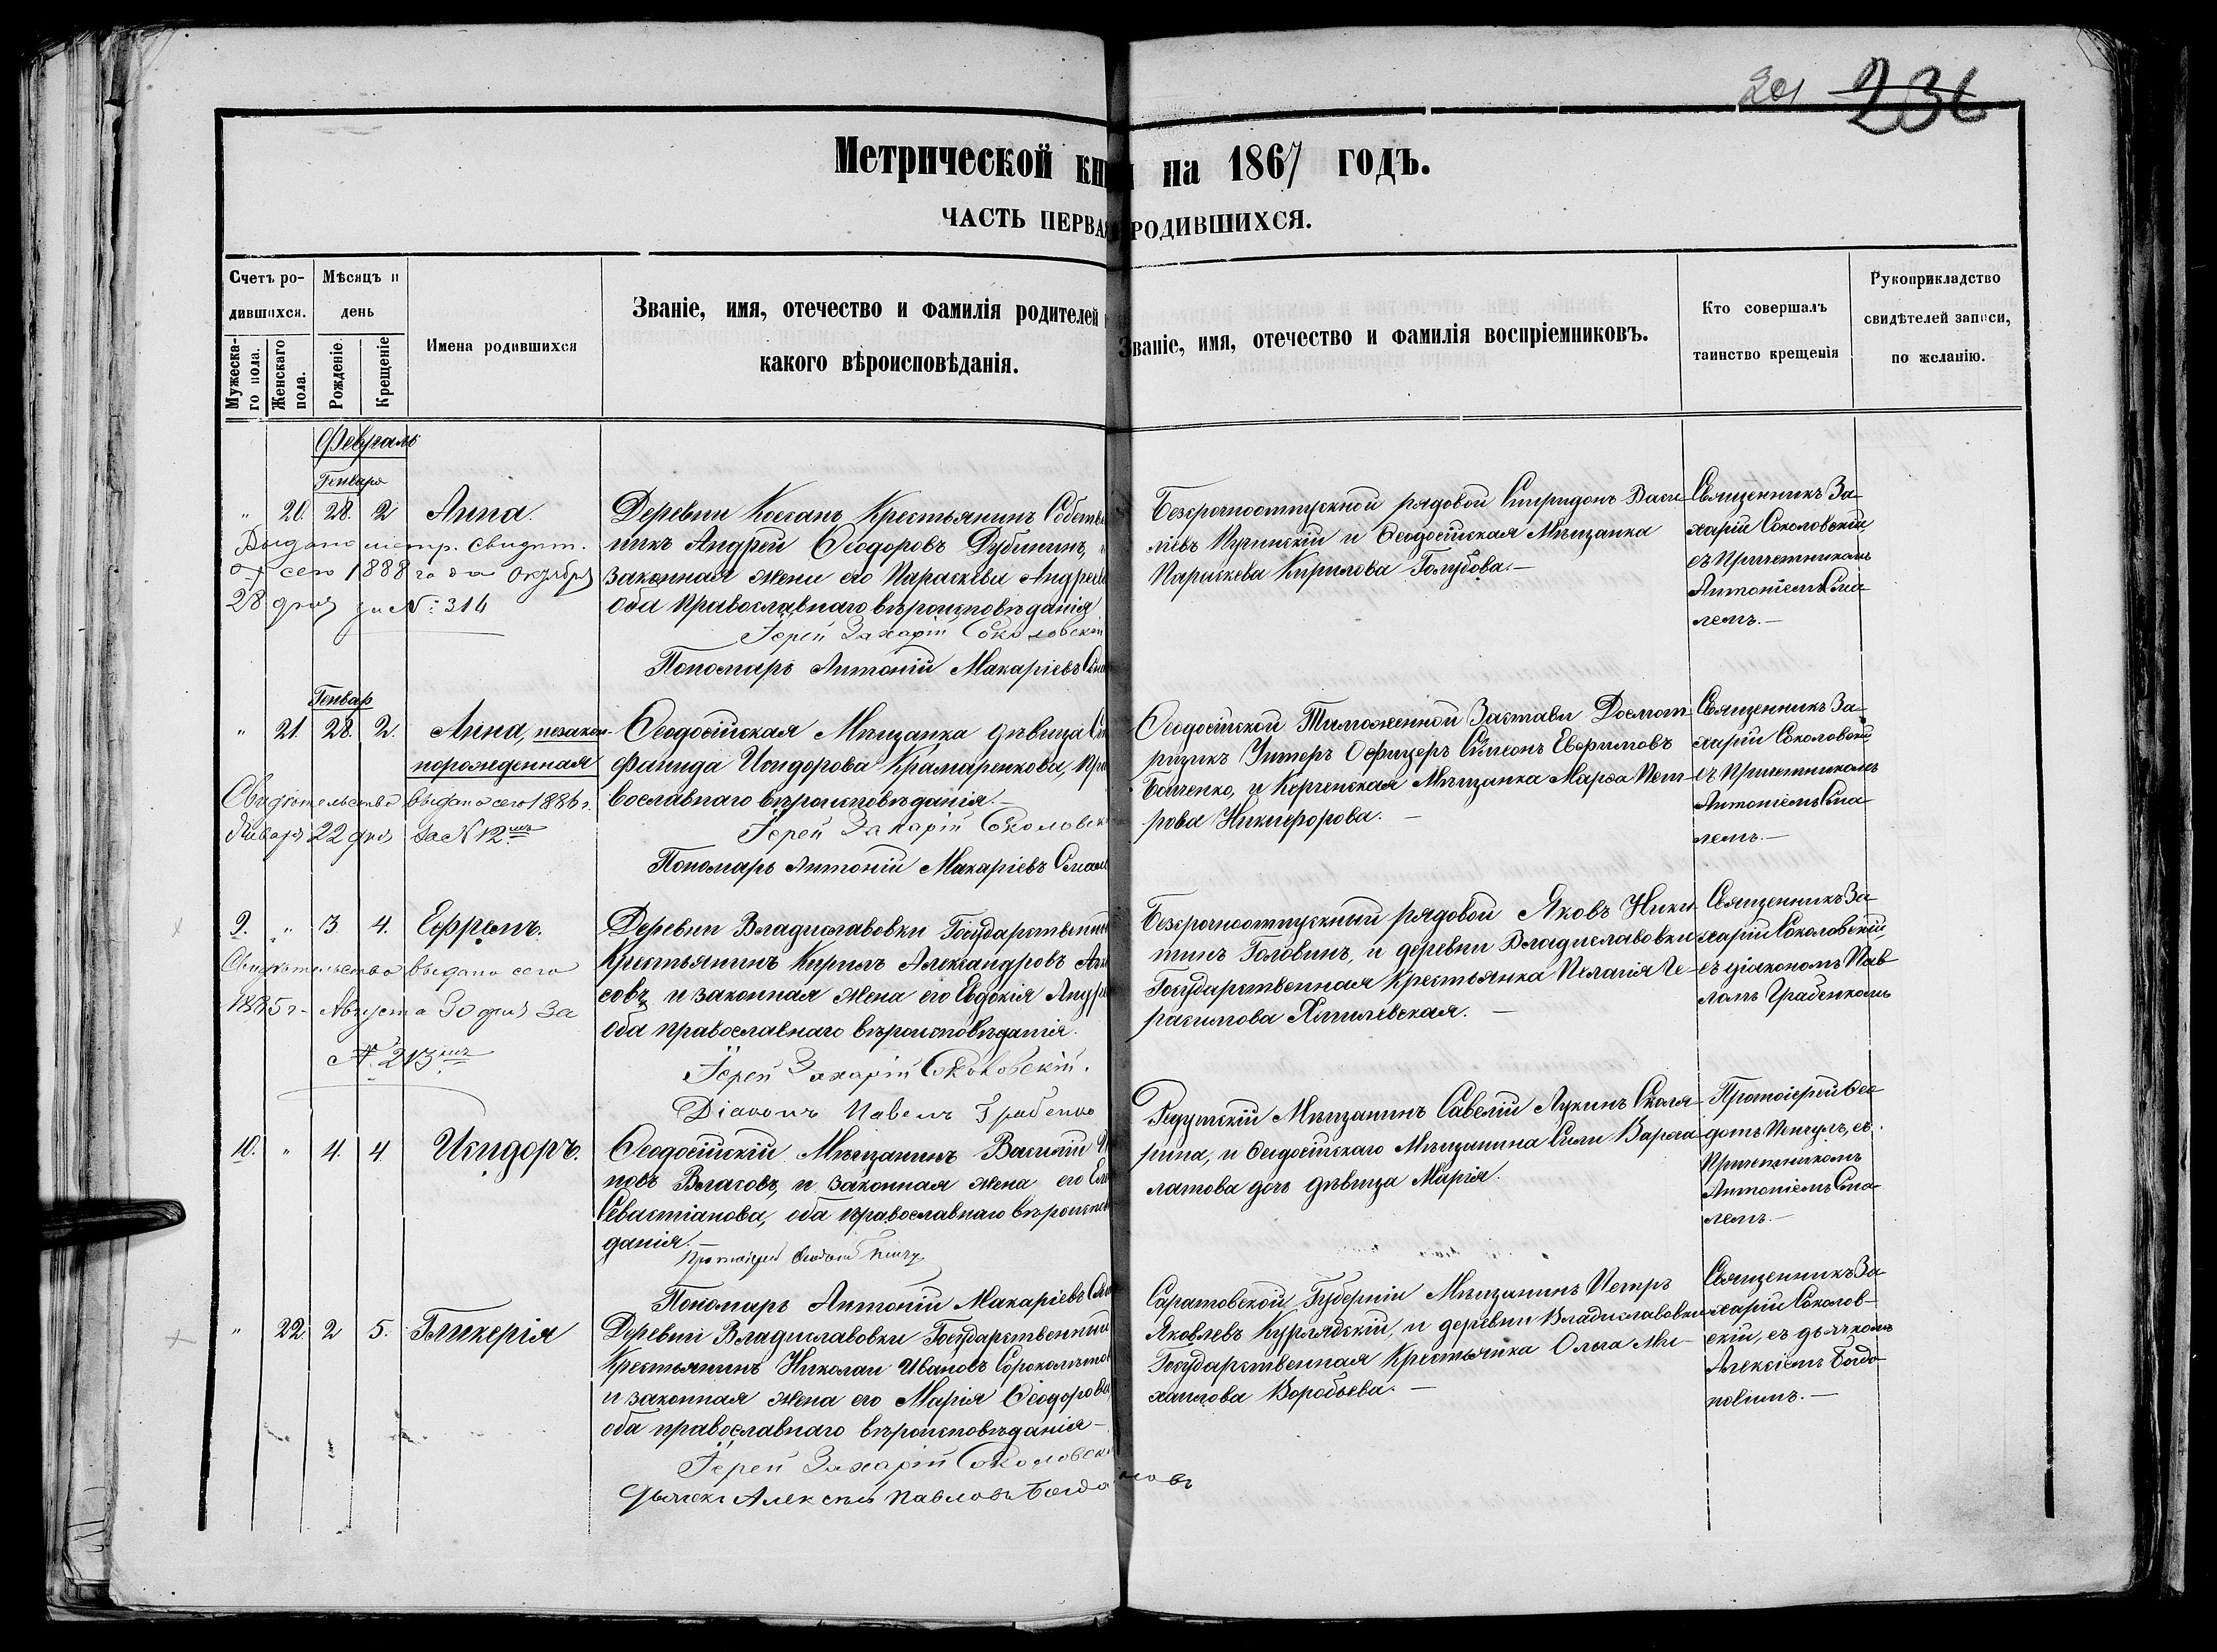 201 236
Метрической кни на 1867 годъ.
ЧАСТЬ ПЕРВАЯ РОДИВШИХСЯ.
Счетъ ро-
дившихся.
Мужеска-
го пола.
Женскаго
пола.
Мѣсяцъ и
день
Рожденіе.
Крещеніе
Имена родившихся
Званіе, имя, отечество и фамилія родителей
какого вѣроисповѣданія.
Званіе, имя, отечество и фамилія воспріемниковъ.
Кто совершалъ
таинство крещенія
Рукоприкладство
свидѣтелей записи,
по желанію.
Февраль
Генваря
" 20. 28. 2 Анна.
Выдано метр. свидет.
сего 1888 года Октября
28 дня за №: 316
Деревни Коссанъ Крестьянинъ Собств
никъ Андрей Ѳеодоровъ Дубининъ,
законная жена его Параскева Андре
оба православнаго вѣроисповѣданія
Іерей Захарій Соколовскій
Пономарь Антоній Макаріевъ
Безсрочноотпускной рядовой Спиридонъ Васи-
ліевъ и Ѳеодосійская Мѣщанка
Параскева Кирилова Голубова.—
Священникъ За-
харій Соколовскій
съ Причетникомъ
Антоніемъ Сма-
лемъ.—
Генвар
" 21. 28. 2. Анна, незакон-
норожденная
Свидѣтельство выдано сего 1886 г.
Января 22 дня за N 12 мъ
Ѳеодосійская Мѣщанка дѣвица
фанида Исидорова Крамаренкова, пра
вославнаго вѣроисповѣданія.—
Іерей Захарій Соколовск
Пономарь Антоній Макаріевъ Смал
Ѳеодосійской Таможенной Заставы Досмот-
рщикъ Унтеръ Офицеръ Симеонъ Евфимовъ
Бойченко, и Керченская Мѣщанка Марѳа Пет-
рова Никифорова.—
Священникъ За-
харій Соколовскій
съ Причетникомъ
Антоніемъ Сма-
лемъ.—
9. " 3 4. Ефремъ.
Свидѣтельство выдано сего
1885 г. Августа 30 дня за
N. 213 мъ
Деревни Владиславовки Государственный
Крестьянинъ Кирилъ Александровъ
совъ и законная жена его Евдокія Андре
оба православнаго вѣроисповѣданія.
Іерей Захарій Соколовскій.
Діаконъ Павелъ Грабенко
Безсрочноотпускный рядовой Яковъ Ники-
тинъ Головинъ, и деревни Владиславовки
Государственная Крестьянка Пелагія Ге-
расимова Хмилевская.—
Священникъ За-
харій Соколовскій,
съ діакономъ Пав-
ломъ Грабенкомъ
10. " 4. 4. Исидоръ.
Ѳеодосійскій Мѣщанинъ Василій
новъ Власовъ, и законная жена его
Севастіанова, оба православнаго вѣроиспов
данія.—
Протоіерей
Пономарь Антоній Макаріевъ
Редутскій Мѣщанинъ Савелій Лукинъ Сколя-
рина, и Ѳеодосійскаго Мѣщанина Силы Варла-
мова дочь дѣвица Марія.
Протоіерей Ѳео-
дотъ Пенчулъ, съ
Причетникомъ
Антоніемъ Сма-
лемъ.—
" 22 2 5. Гликерія
Деревни Владиславовки Государственный
Крестьянинъ Николай Ивановъ Сороколѣтов
и законная жена его Марія Ѳеодорова,
оба православнаго вѣроисповѣданія—
Іерей Захарій Соколовск
Дьячекъ Алексѣй Павловъ Богдановъ
Саратовской Губерніи Мѣщанинъ Петръ
Яковлевъ Курлядскій, и деревни Владиславовки
Государственная Крестьянка Ольга Ми-
хаилова Воробьева.—
Священникъ За-
харій Соколов-
скій, съ дьячкомъ
Алексіемъ Богда-
новымъ.—